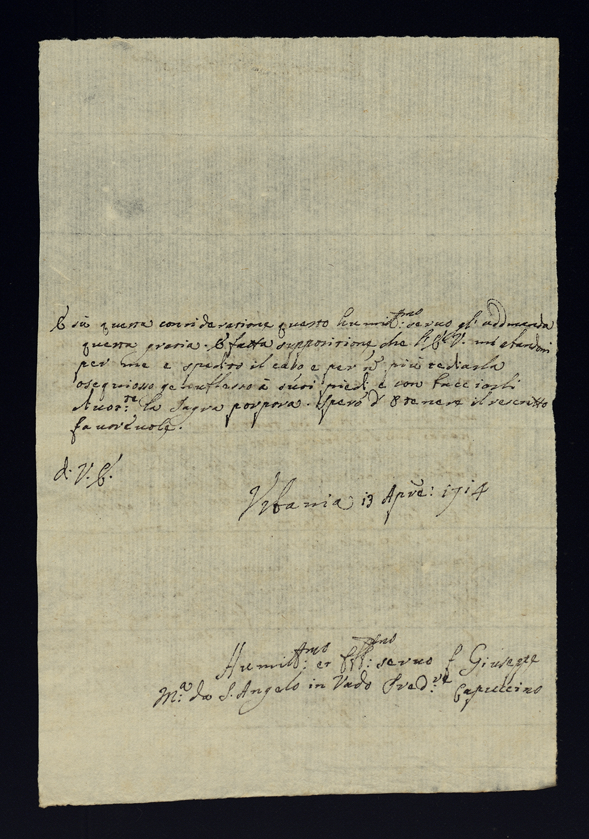 E su questa consideratione questo humil:mo seruo gl' addmanda
questa gratia. E fatta suppositione che V.E.
per me e spedito il caso e per nō più tediarla
osequioso genuflesso à suoi piedi e con bacciarli
la sagra porpora. Spero d' ottenere il rescritto
fauoreuole.
d. V. E.
Vrbania 13 Aprē: 1714
Humil:mo et seruo f Giuseppe
M.a da S. Angelo in Vado Pred:re Capuccino